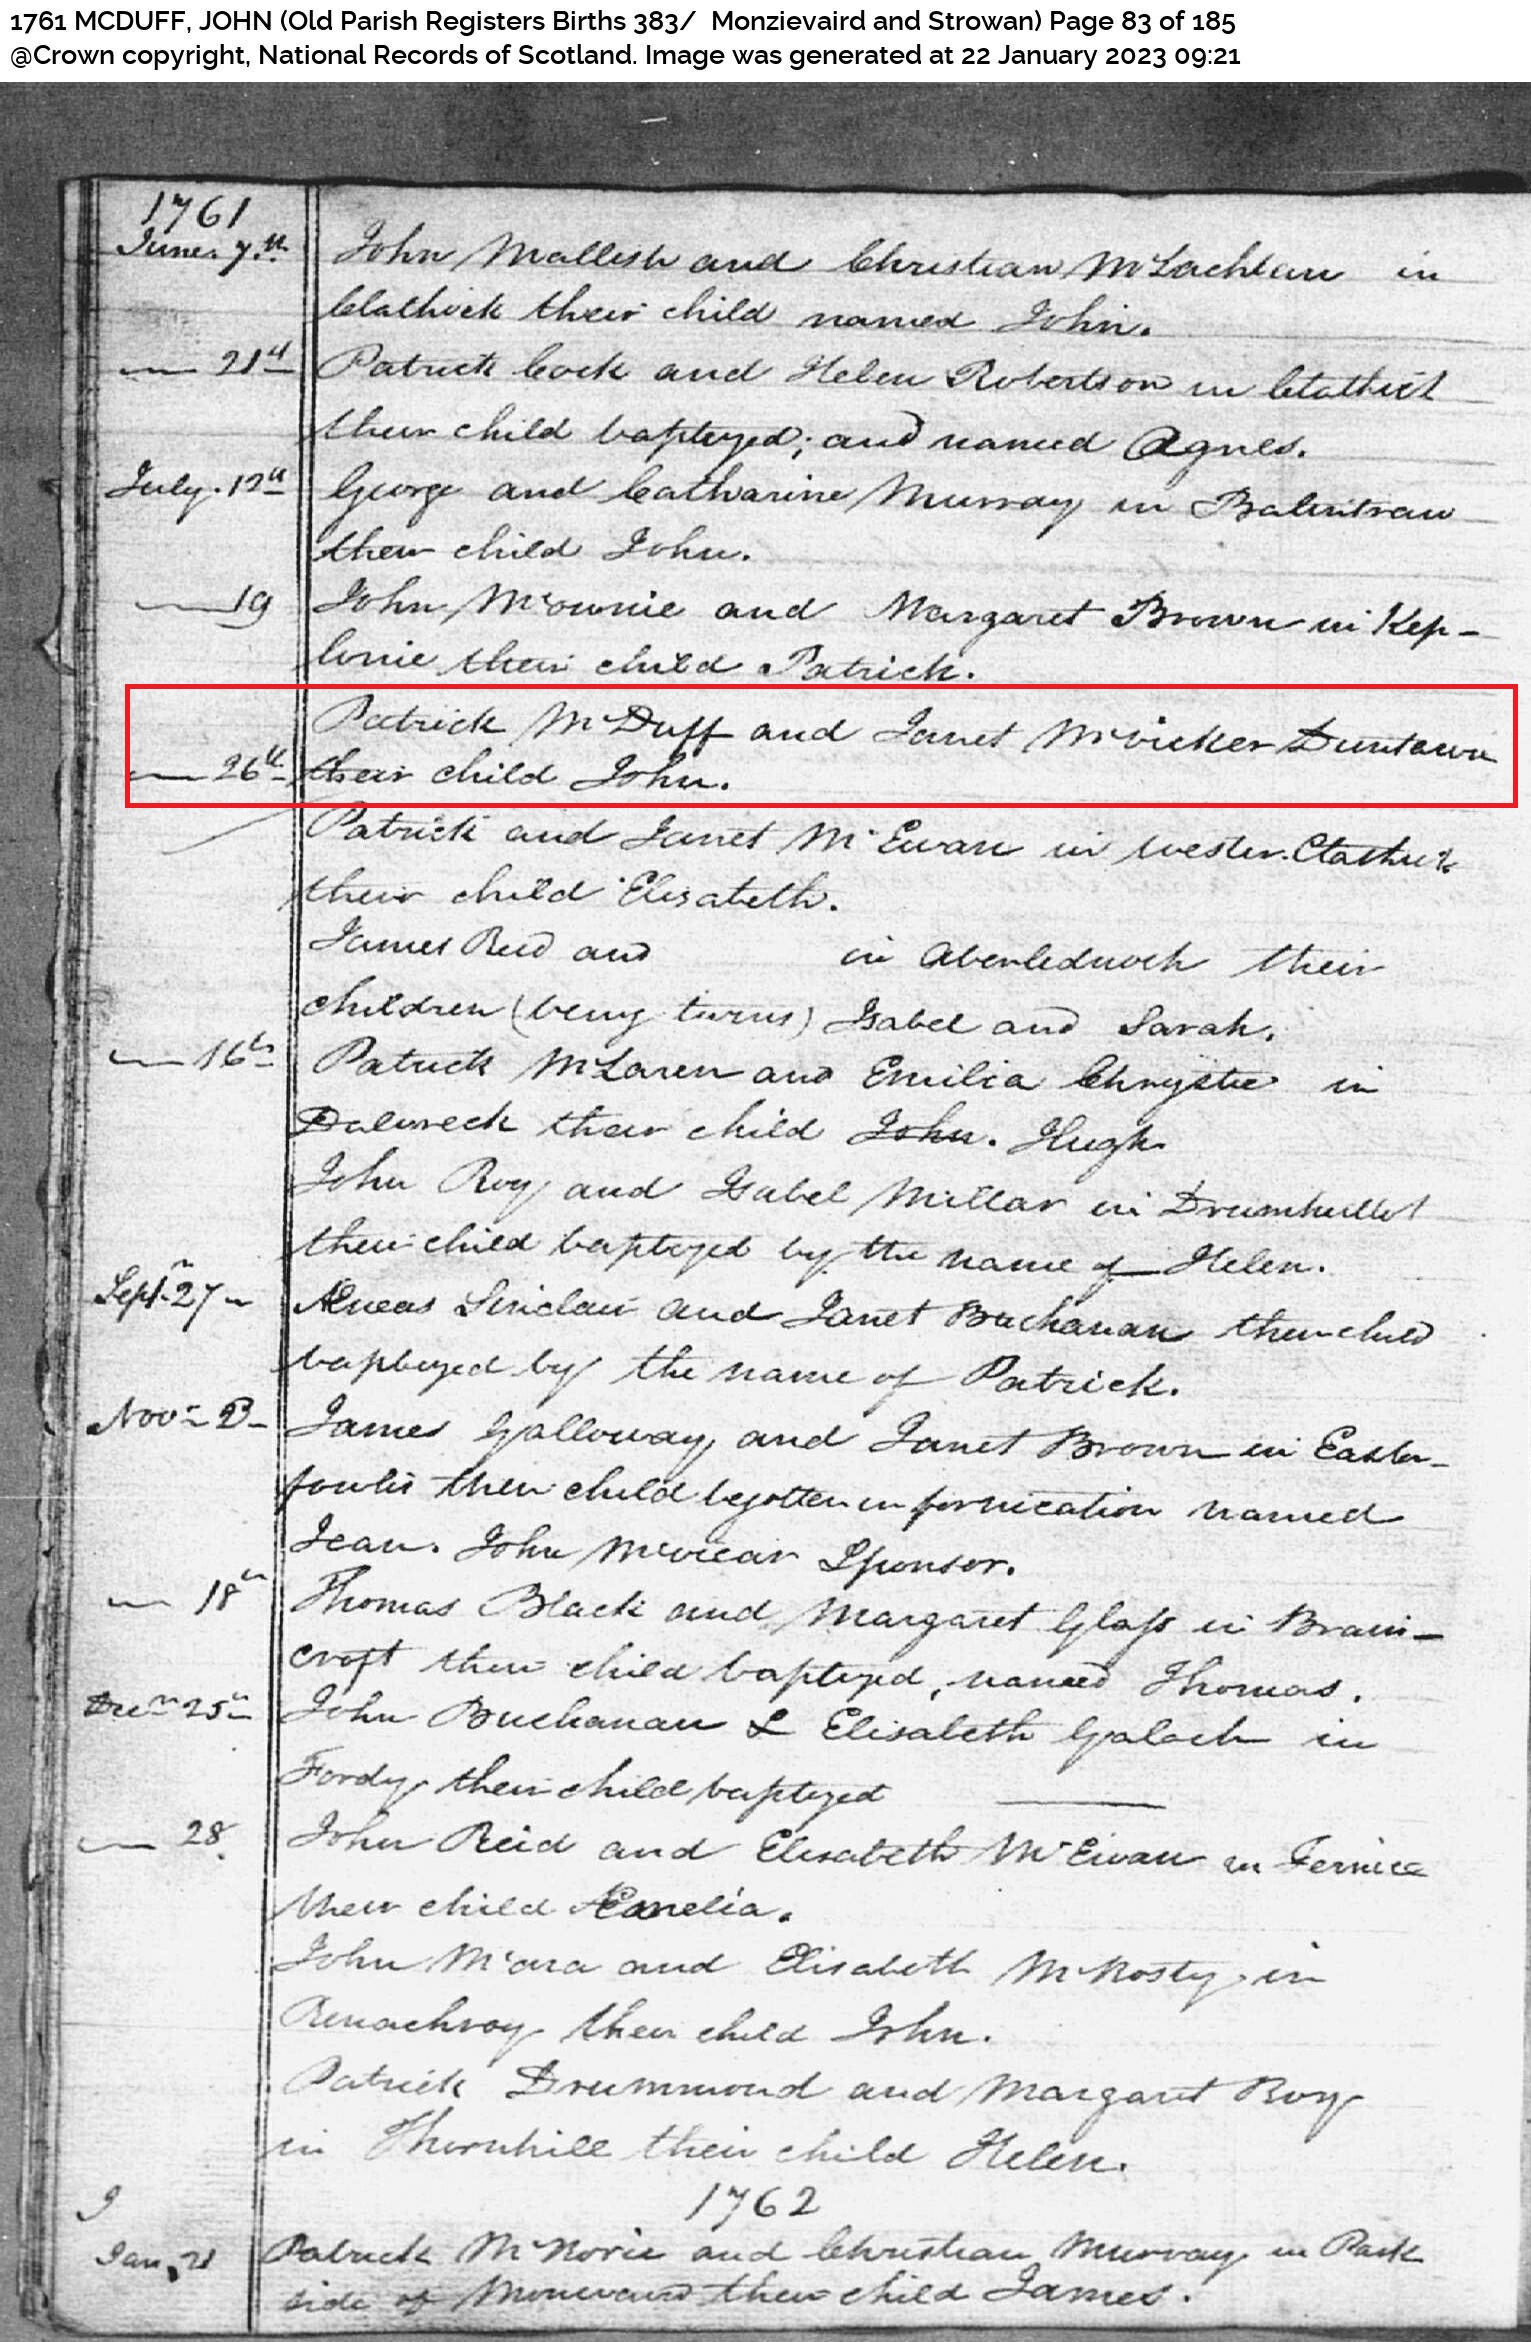 1761 MCDUFF, JOHN (Old Parish Registers Births 383/ Monzievaird and Strowan) Page 83 of 185
@Crown copyright, National Records of Scotland. Image was generated at 22 January 2023 09:21
1761
June 7th John Mallish and Christian McLachlan in
Clathick their child named John.
— 21st Patrick Cock and Helen Robertson in Clathick
their child baptyzed; and named Agnes.
July 12th George and Catharine Murray in Balintraw
their child John.
— 19 John McOwnie and Margaret Brown in Kep-
their child Patrick.
Patrick McDuff and Janet McVicker Duntawn
— 26th their child John.
Patrick and Janet McEwan in Wester Clathick
their child Elisabeth.
James Reid and in Aberlednoch their
children (being twins) Isabel and Sarah.
— 16th Patrick McLaren and Emilia Chrystie in
their child John. Hugh
John Roy and Isabel Millar in
their child baptyzed by the name of Helen.
Septr 27 Æneas Sinclair and Janet Buchanan their child
baptyzed by the name of Patrick.
Novr James Galloway and Janet Brown in Easter-
foulis their child begotten in fornication named
Jean. John McVicar Sponsor.
— 18th Thomas Black and Margaret Glass in
croft their child baptyzed, named Thomas.
Decr 25th John Buchanan & Elisabeth in
Fordy their child baptyzed
— 28. John Reid and Elisabeth McEwan in
their child
John McAra and Elisabeth McRosty in
their child John.
Patrick Drummond and Margaret Roy
in Thornhill their child Helen.
1762
Jan. 21 Patrick McRorie and Christian Murray in Park
side of their child James.